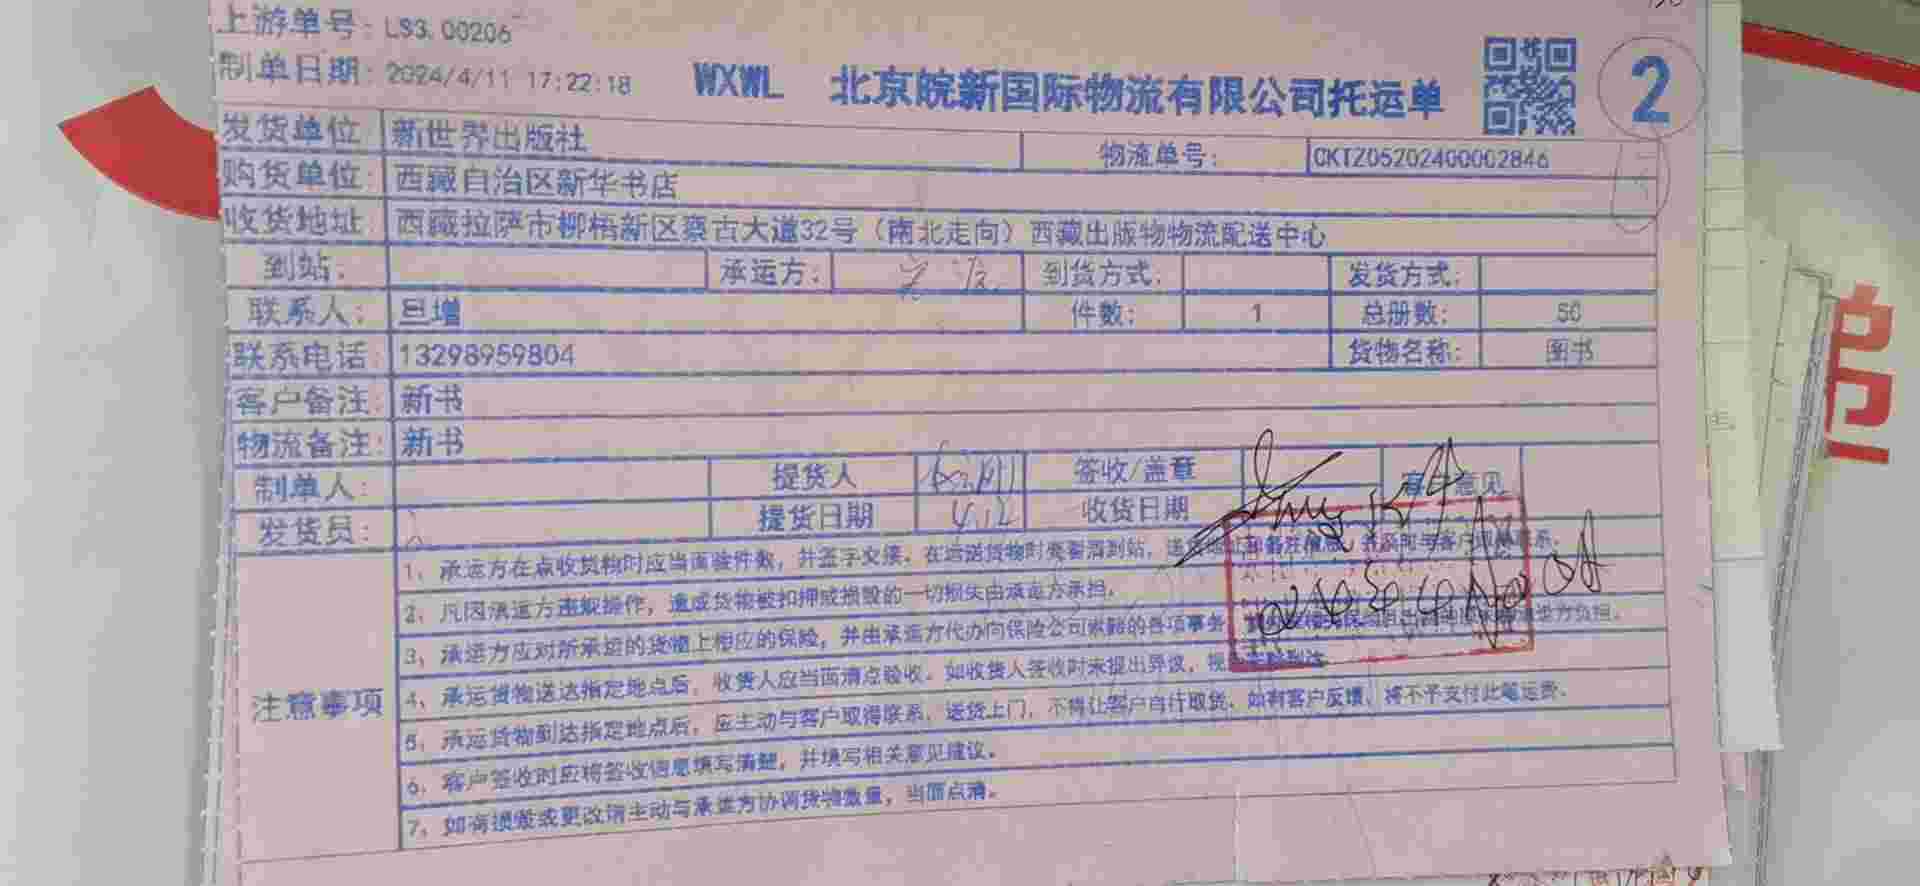 上游单号: LS3.00206
制单日期: 2024/4/11 17:22:18
WXWL 北京皖新国际物流有限公司托运单 2
发货单位 新世界出版社 物流单号: CKTZ05202400002846
购货单位: 西藏自治区新华书店
收货地址 西藏拉萨市柳梧新区察古大道32号（南北走向）西藏出版物物流配送中心
到站: 承运方: 到货方式: 发货方式:
联系人: 旦增 件数: 1 总册数: 50
联系电话: 13298959804 货物名称: 图书
客户备注: 新书
物流备注: 新书
制单人: 提货人 签收/盖章 意见
发货员: 提货日期 4.12 收货日期
注意事项
1、承运方在点收货物时应当面验件数，并签字交接。在运送货物时要看清到站，
2、凡因承运方违规操作，造成货物被扣押或损毁的一切损失由承运方承担。
3、承运方应对所承运的货物上相应的保险，并由承运方代办向保险公司索赔的各项事务，
4、承运货物送达指定地点后，收货人应当面清点验收。如收货人签收时未提出异议，视
5、承运货物到达指定地点后，应主动与客户取得联系，送货上门，不得让客户自行取货。如有客户反馈，将不予支付此笔运费。
6、客户签收时应将签收信息填写清楚，并填写相关意见建议。
7、如有损毁或更改请主动与承运方协调货物数量，当面点清。